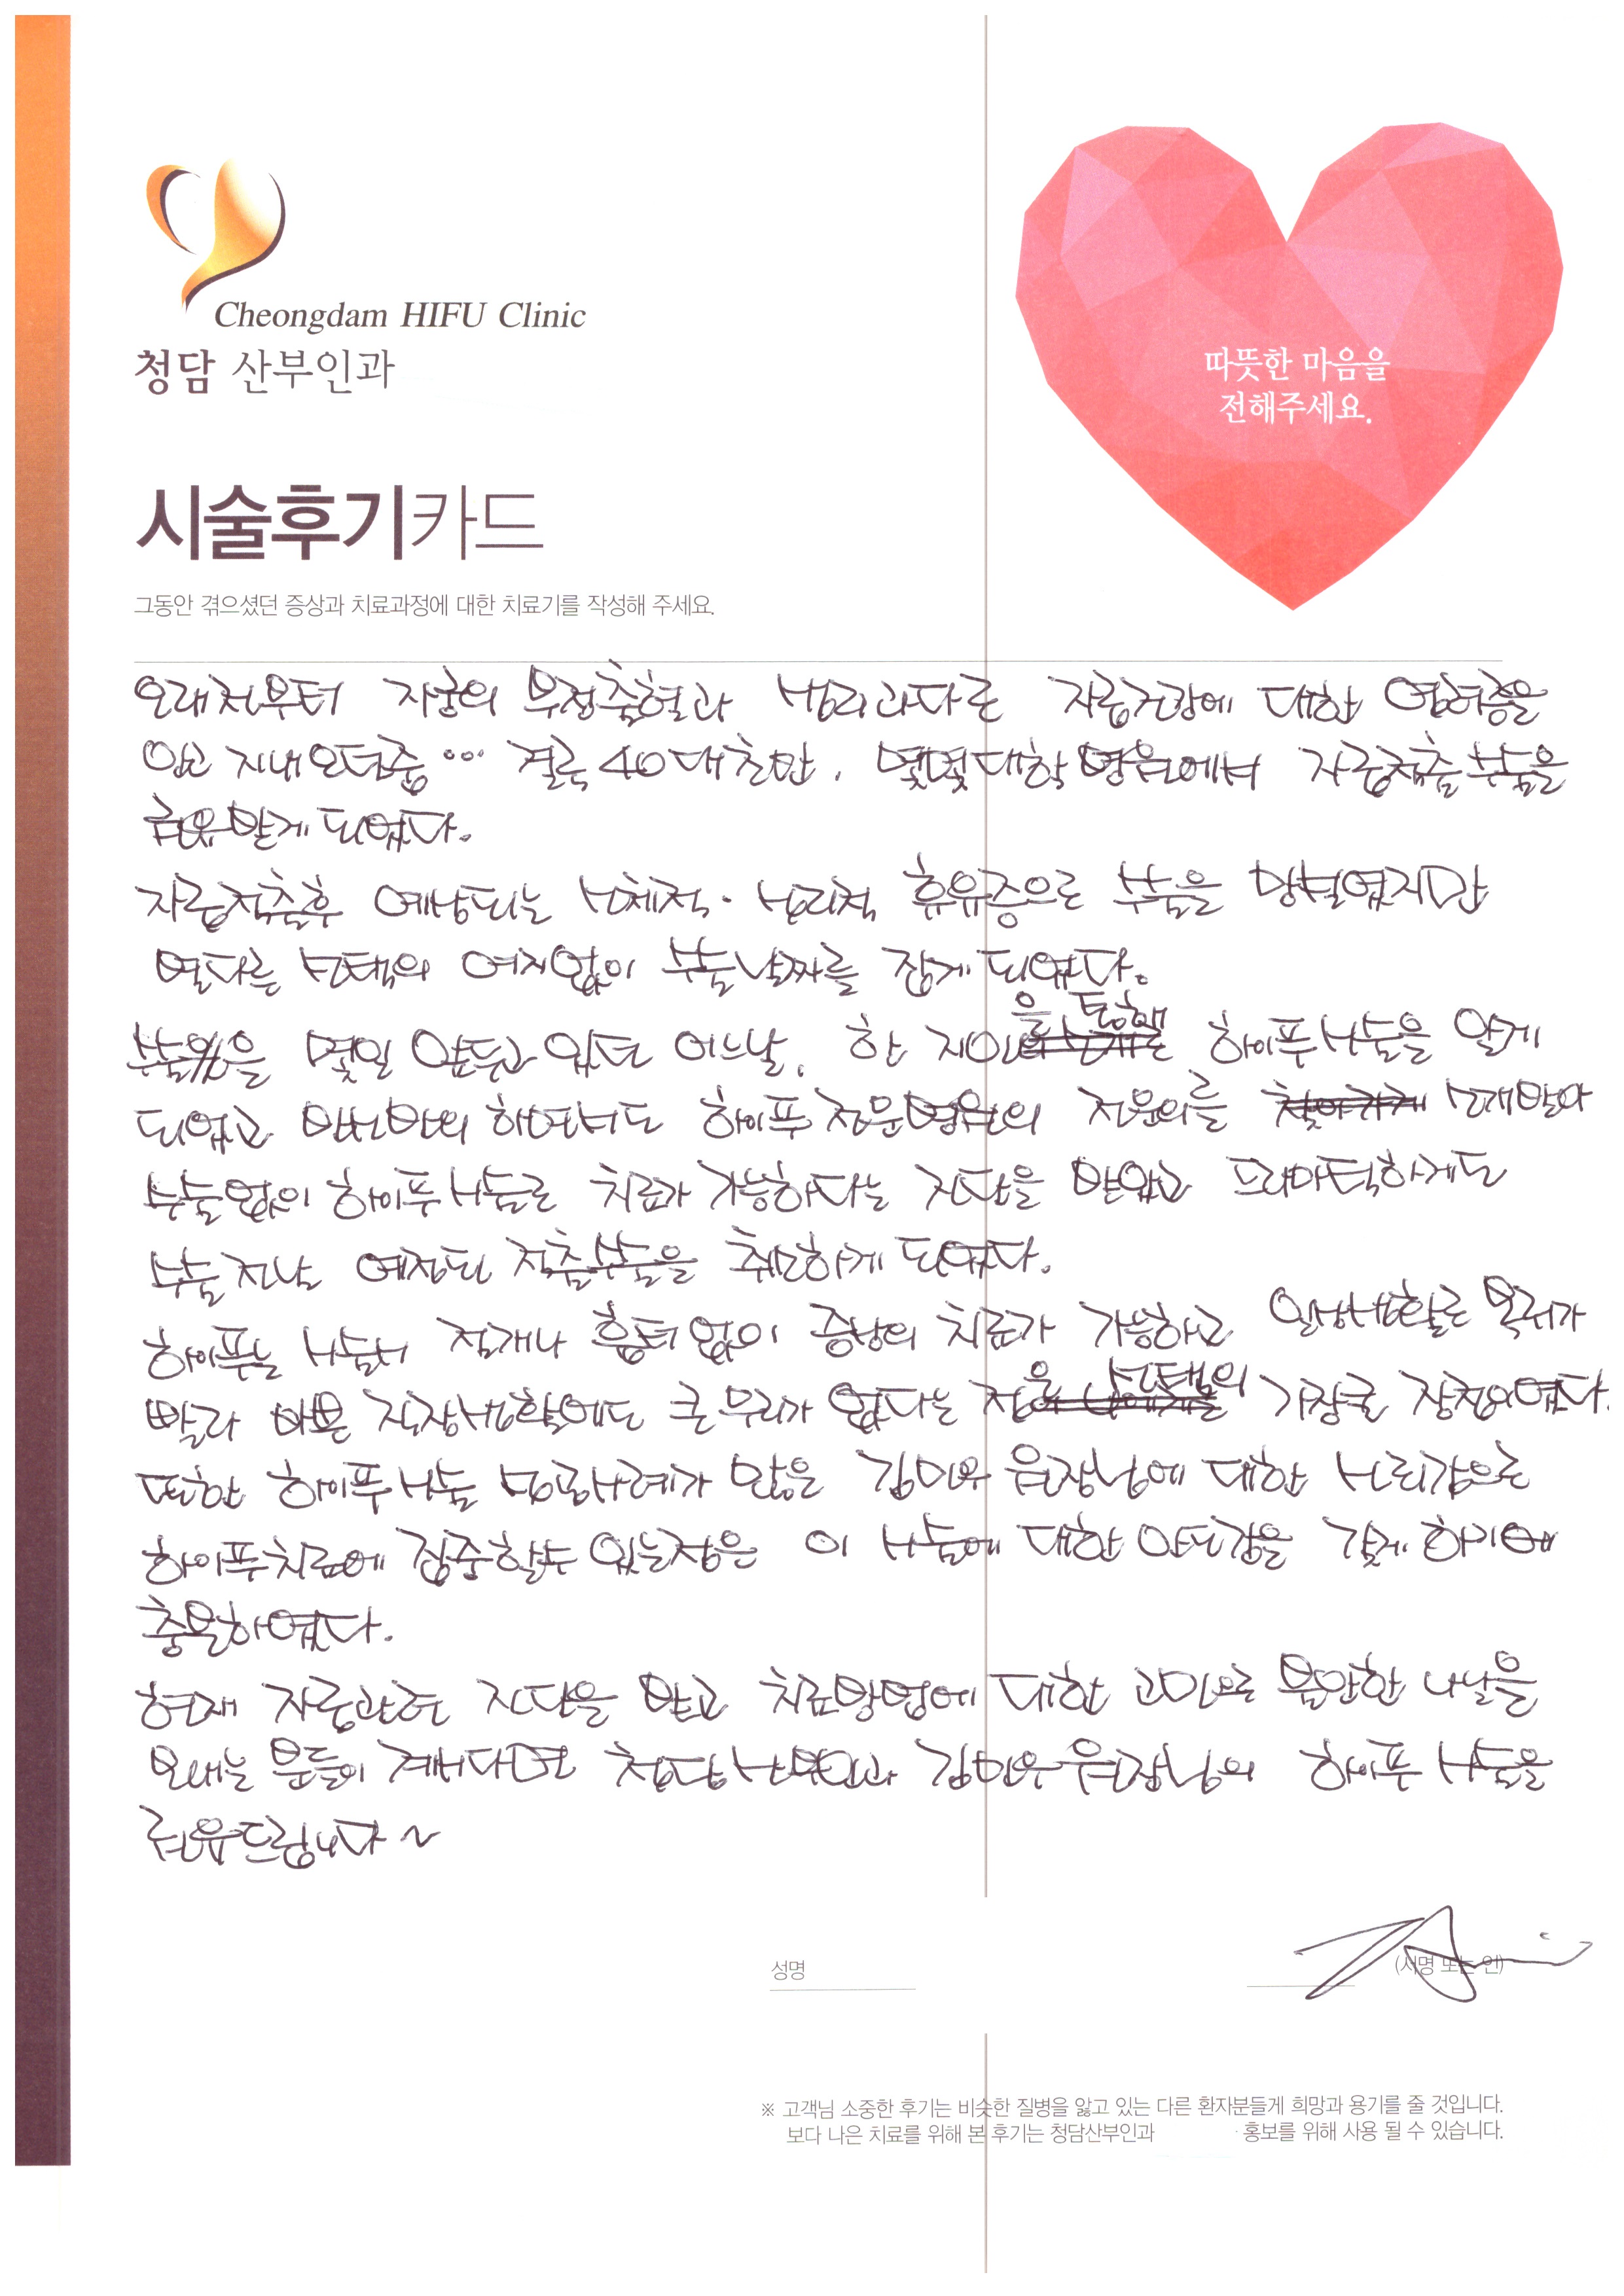 Cheongdam HIFU Clinic
청담 산부인과
따뜻한 마음을
전해주세요.
시술후기카드
그동안 겪으셨던 증상과 치료과정에 대한 치료기를 작성해 주세요.
오래전부터 자궁의 부정출혈과 심리과다로 자궁건강에 대한 염려증을
안고 지내오던중... 결국 40대 초반, 몇몇 대학병원에서 자궁적출수술을
권유받게 되었다.
자궁적출후 예상되는 신체적·심리적 후유증으로 수술을 망설였지만
별다른 선택의 여지없이 수술날짜를 잡게 되었다.
수술일을 몇일 앞두고 있던 어느날, 한 지인을 통해 하이푸시술을 알게
되었고 반신반의 하면서도 하이푸 전문병원의 전문의를 소개받아
수술없이 하이푸시술로 치료가 가능하다는 진단을 받았고 드라마틱하게도
수술전날 예정된 적출수술을 취소하게 되었다.
하이푸는 시술시 절개나 흉터없이 증상의 치료가 가능하고 일상생활로 복귀가
빨라 바쁜 직장생활에도 큰 무리가 없다는 점을 선택의 가장큰 장점이였다.
또한 하이푸시술 성공사례가 많은 김민우 원장님에 대한 신뢰감으로
하이푸치료에 집중할수 있는점은 이 시술에 대한 안도감을 갖게 하기에
충분하였다.
현재 자궁관련 진단을 받고 치료방법에 대한 고민으로 불안한 나날을
보내는 분들이 계시다면 청담산부인과 김민우 원장님의 하이푸 시술을
권유드립니다~
성명
(서명 또는 인)
※ 고객님 소중한 후기는 비슷한 질병을 앓고 있는 다른 환자분들게 희망과 용기를 줄 것입니다.
보다 나은 치료를 위해 본 후기는 청담산부인과 홍보를 위해 사용 될 수 있습니다.